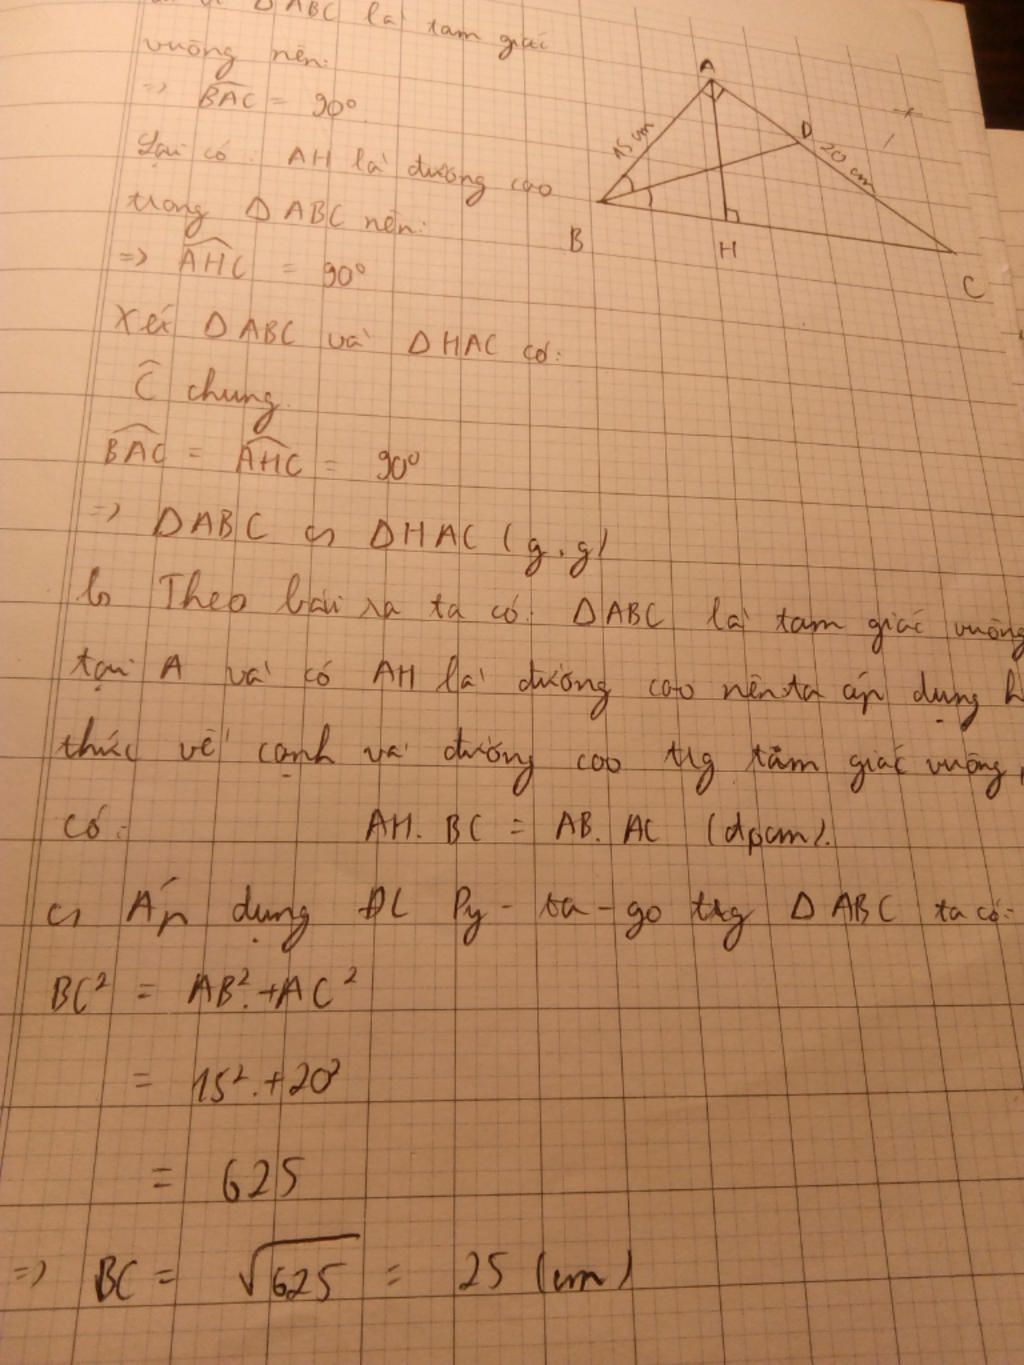 Δ ABC là tam giác
vuông nên:
=> BAC = 90°
Lại có: AH là đường cao
trong Δ ABC nên:
=> AHC = 90°
Xét Δ ABC và Δ HAC có:
Ĉ chung.
BAC = AHC = 90°
=> Δ ABC ∽ Δ HAC (g.g)
b, Theo bài ra ta có: Δ ABC là tam giác vuông
tại A và có AH là đường cao nên ta áp dụng h
thức về cạnh và đường cao trg tam giác vuông,
có: AH. BC = AB. AC (đpcm).
c, Áp dụng ĐL Py-ta-go trg Δ ABC ta có:
BC² = AB² + AC²
= 15² + 20²
= 625
=> BC = √625 = 25 (cm)
A
15 cm
D
20 cm
B
H
C